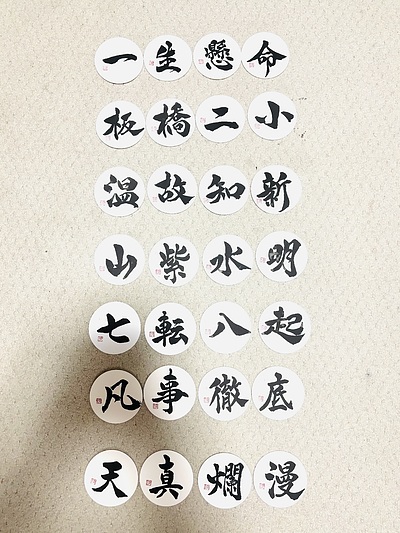 一生懸命
板橋二小
温故知新
山紫水明
七転八起
凡事徹底
天真爛漫